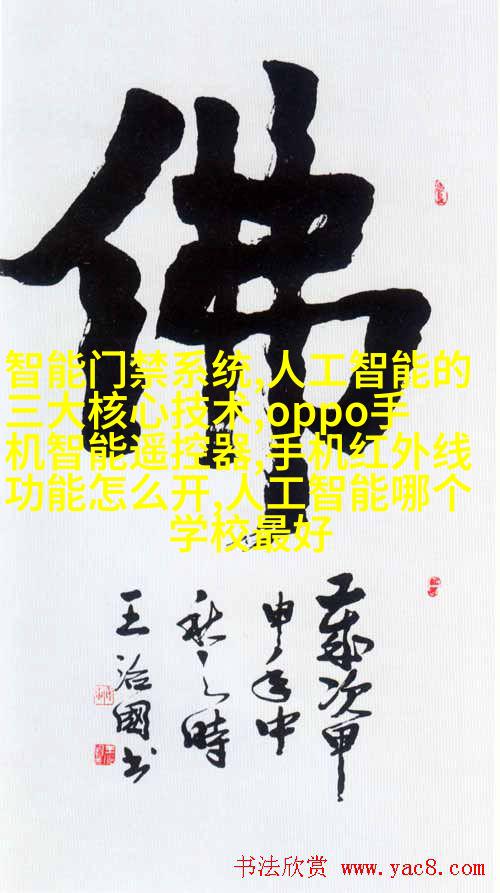 佛
智能门禁系统,人工智能的
三大核心技术,oppo手
机智能遥控器,手机红外线
功能怎么开,人工智能哪个
学校最好
岁次甲
申年中
秋之时
王治国书
书法欣赏 www.yac8.com